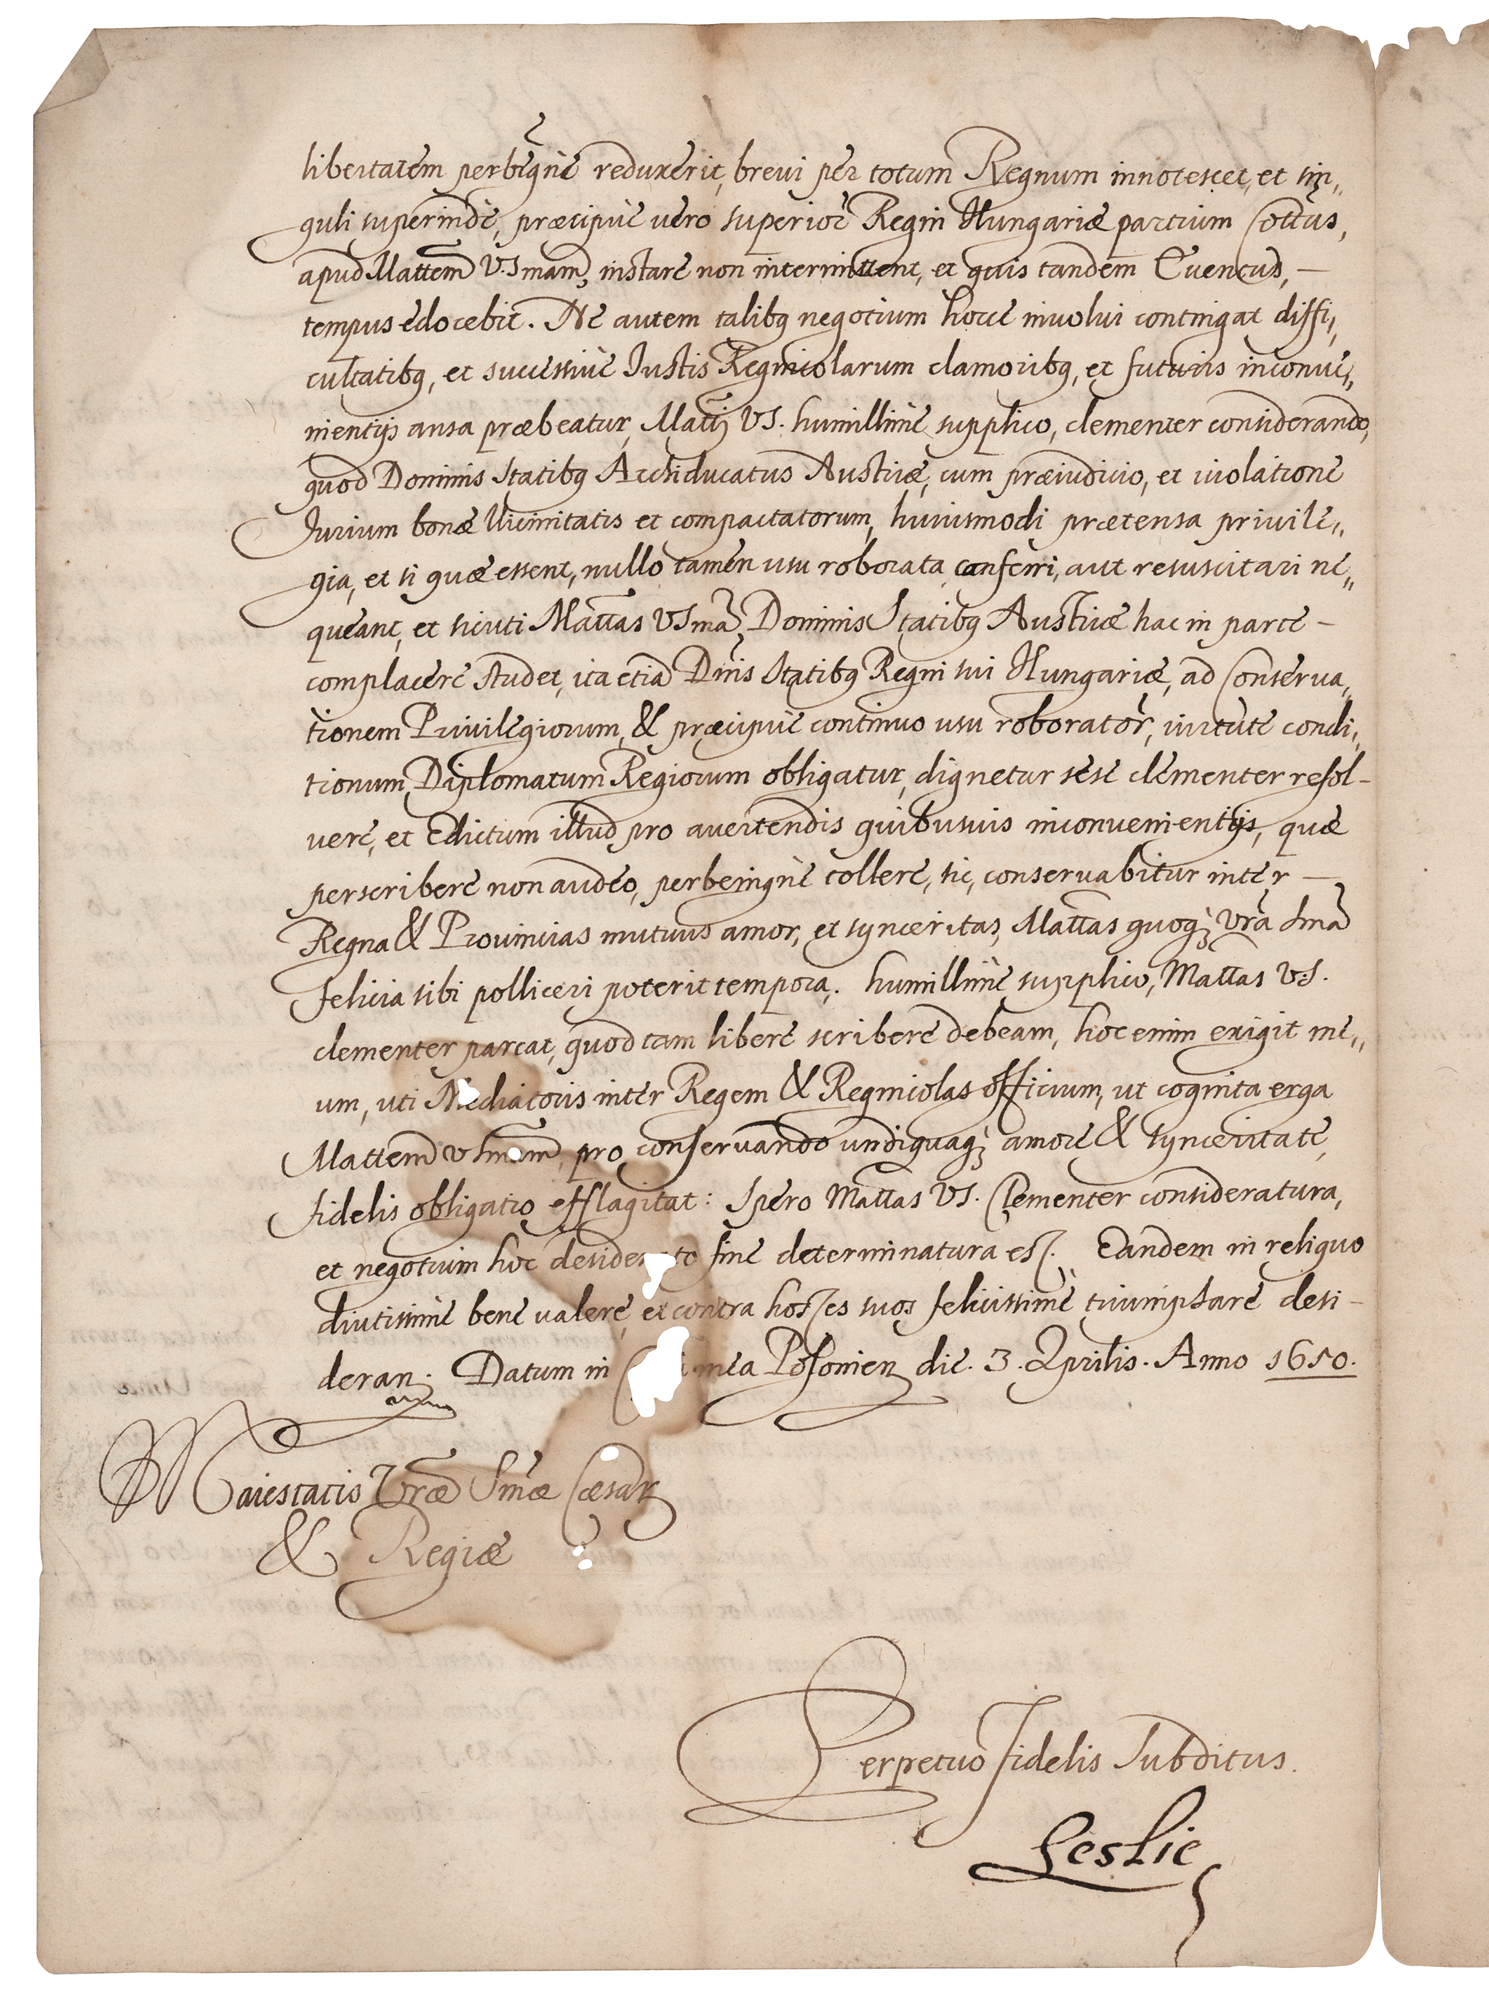 libertatem perbegnè reduxerit, brevi per totum Regnum innotescet, et sin,,
guli superindè, præcipuè vero superior Regni Hungariæ partium Cottus,
apud Mattem V. Smam, instare non intermittent, et quis tandem Eventus, —
tempus edocebit. Ne autem talibq negotium hocce involui contingat diffi,,
cultatibq, et successiuè Justis Regnicolarum clamoribq, et futuris inconue,,
nientijs ansa præbeatur, Mattj VS. humillimè supplico, clementer considerando,
quod Dominis Statibq Archiducatus Austriæ, cum præiudicio, et violatione
Jurium bonæ Vicinitatis et compactatorum, huiusmodi prætensa privile,,
gia, et si quæ essent, nullo tamen usu roborata conferri, aut resuscitari ne,,
queant, et sicuti Mattas VSma, Dominis Statibq Austriæ hac in parte —
complacere studet, ita etiã Dnis Statibq Regni sui Hungariæ, ad Conserva,
tionem Priuilegiorum, & præcipuè continuo usu roborator, virtute condi,,
tionum, Diplomatum Regiorum obligatur, dignetur sese clementer resol-
vere, et Edictum illud pro auertendis quibusuis inconuenientijs, quæ
perscribere non audeo, perbenignè tollere, sic, conservabitur inter —
Regna & Prouincias mutuus amor, et synceritas, Mattas quoqȝ vra Sma
felicia sibi polliceri poterit tempora. humillimè supplico, Mattas V.S.
clementer parcat, quod tam liberè scribere debeam, hoc enim exigit me,,
um, uti Mediatoris inter Regem & Regnicolas officium, ut cognita erga
Mattem VSmam, pro conservando undiquaqȝ amore & synceritate,
fidelis obligatio efflagitat: Spero Mattas VS. Clementer consideratura,
et negotium hoc desiderato fine determinatura est. Eandem in reliquo
diutissimè bene valere, et contra hostes suos felicissimè triumphare desi-
deran. Datum in mea Posonien die. 3. Aprilis. Anno 1650.
Maiestatis Vræ Smæ Cæsar
& Regiæ
Perpetuo fidelis Subditus.
Leslie